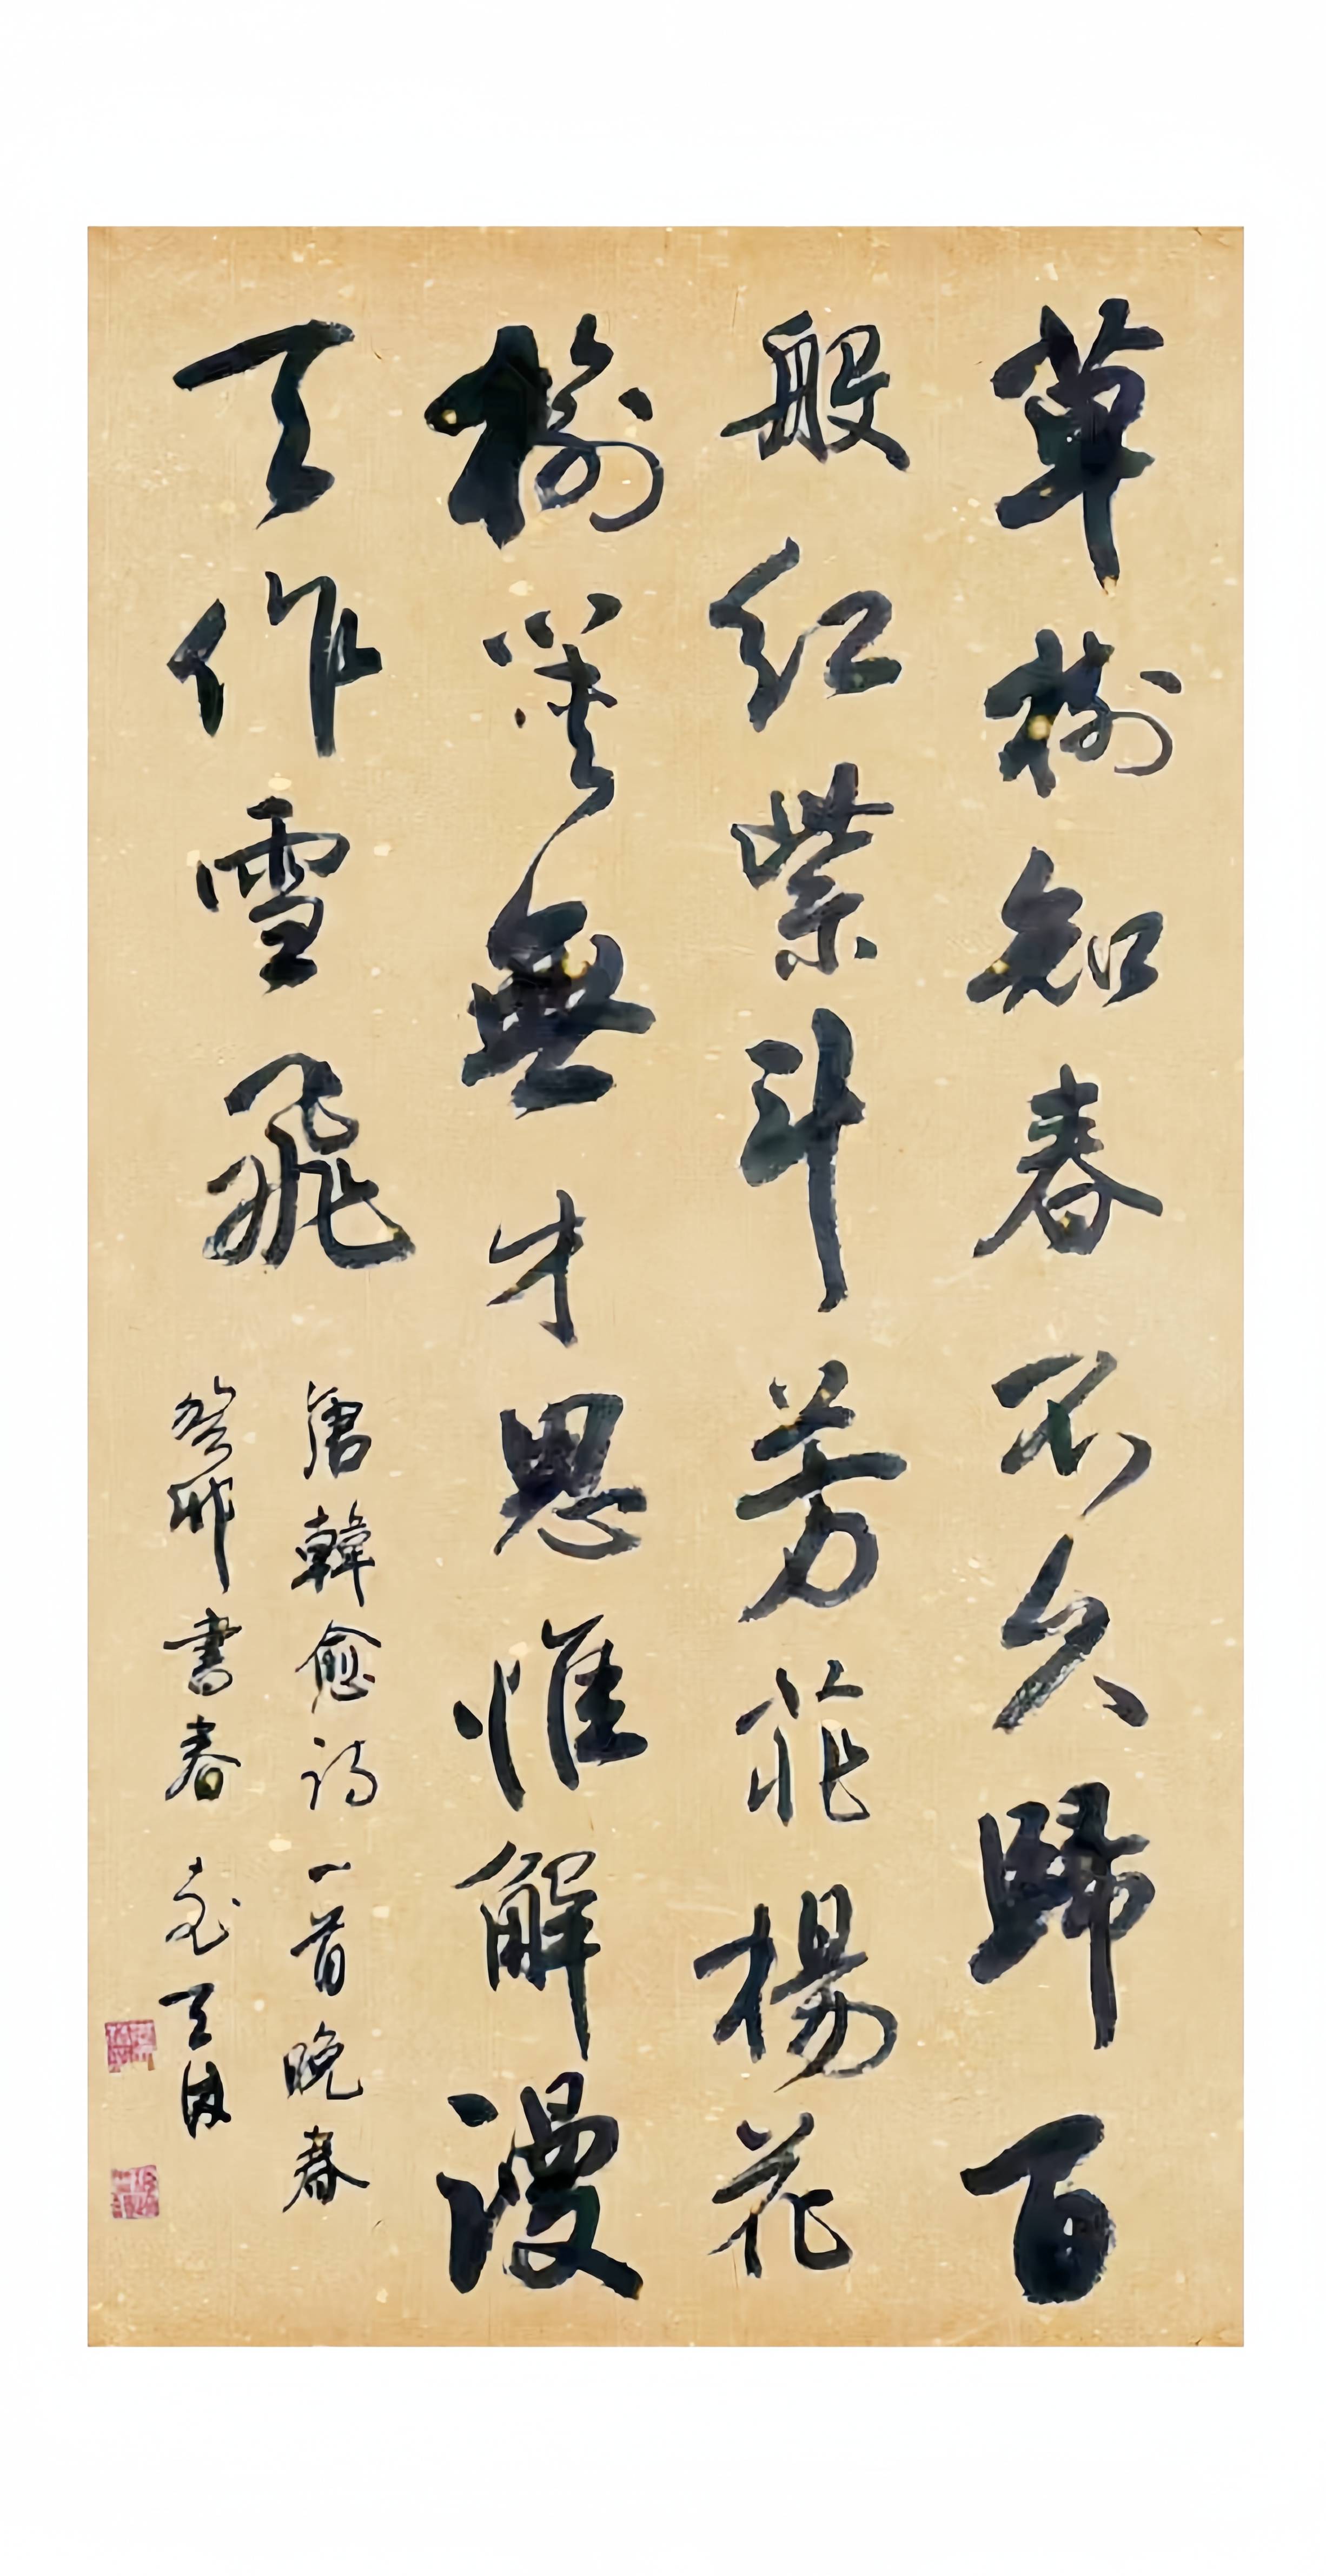 草樹知春不久歸百
般红紫鬥芳菲楊花
榆莢無才思惟解漫
天作雪飛
唐韓愈詩一首晚春
癸卯書春